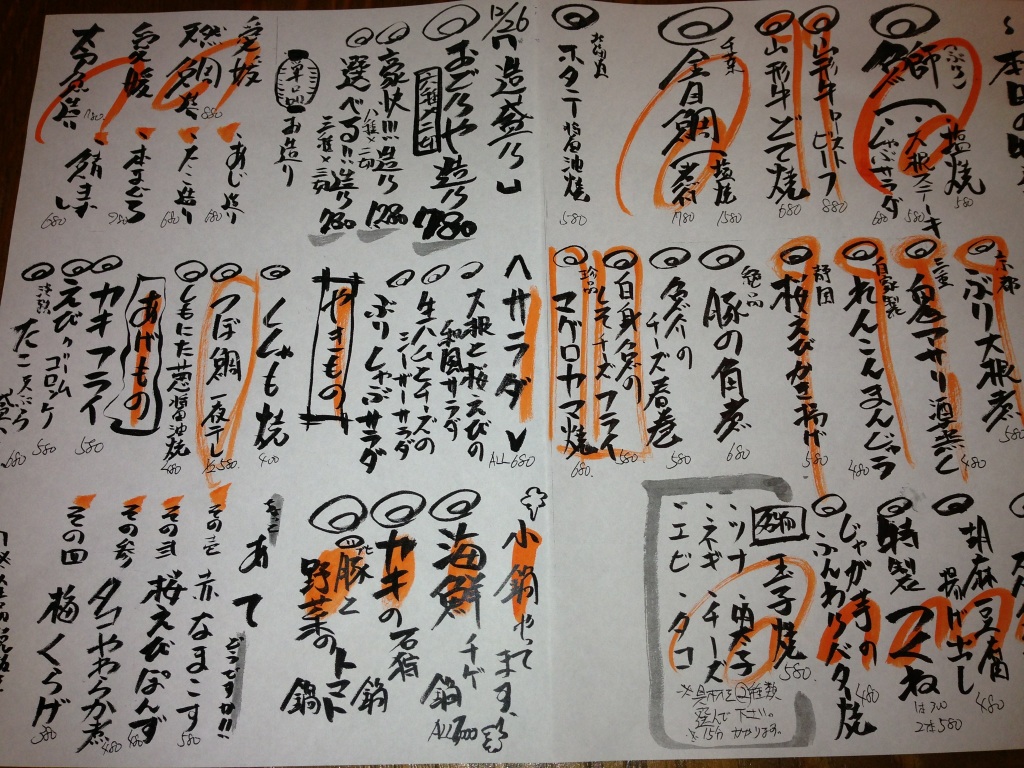 本日の
ぶり
塩焼 580
大根ステーキ 580
しゃぶサラダ 680
山形牛ローストビーフ 880
山形牛どて焼 680
千葉
金目鯛
塩焼 1580
煮付 1780
北海道
ホタテ醤油焼 580
12/26
「造り盛り」
おどりや造り 780
豪快!!!造り 1280
選べる!!造り 780
三種×三切
単品
お造り
愛媛
880
あじ造り 680
たこ造り 680
愛媛
本まぐろ 980
太刀魚造り 780
680
京都
ぶり大根煮 580
三重
鬼アサリ酒蒸し 480
自家製
れんこんまんじゅう 480
静岡
桜えびかき揚げ 580
絶品
豚の角煮 680
チーズ春巻 580
白身魚の
しそチーズフライ 580
珍品
マグロカマ焼 680
<サラダ>
ALL 680
大根と桜えびの
和風サラダ
生ハムとチーズの
シーザーサラダ
ぶりしゃぶサラダ
やきもの
ししゃも焼 400
つぼ鯛一夜干し
1/2 580
しもにた葱醤油焼 480
あげもの
カキフライ 580
えびクリームコロッケ 580
たこ天ぷら 680
胡麻豆腐
揚げ出し 480
特製
つくね
2本580
じゃが芋の
ふんわりバター焼 480
名物
玉子焼 580
・ツナ・明太子
・ネギ・チーズ
・エビ・タコ
※具材を2種類
選んで下さい。
※15分かかります。
小鍋やってます。
海鮮チゲ鍋
カキの石狩鍋
豚と
野菜のトマト鍋
ALL
あて
どうですか!!
その壱 赤なまこす 580
その弐 桜えびぽんず 480
その参 タコやわらか煮 480
その四 梅くらげ 380